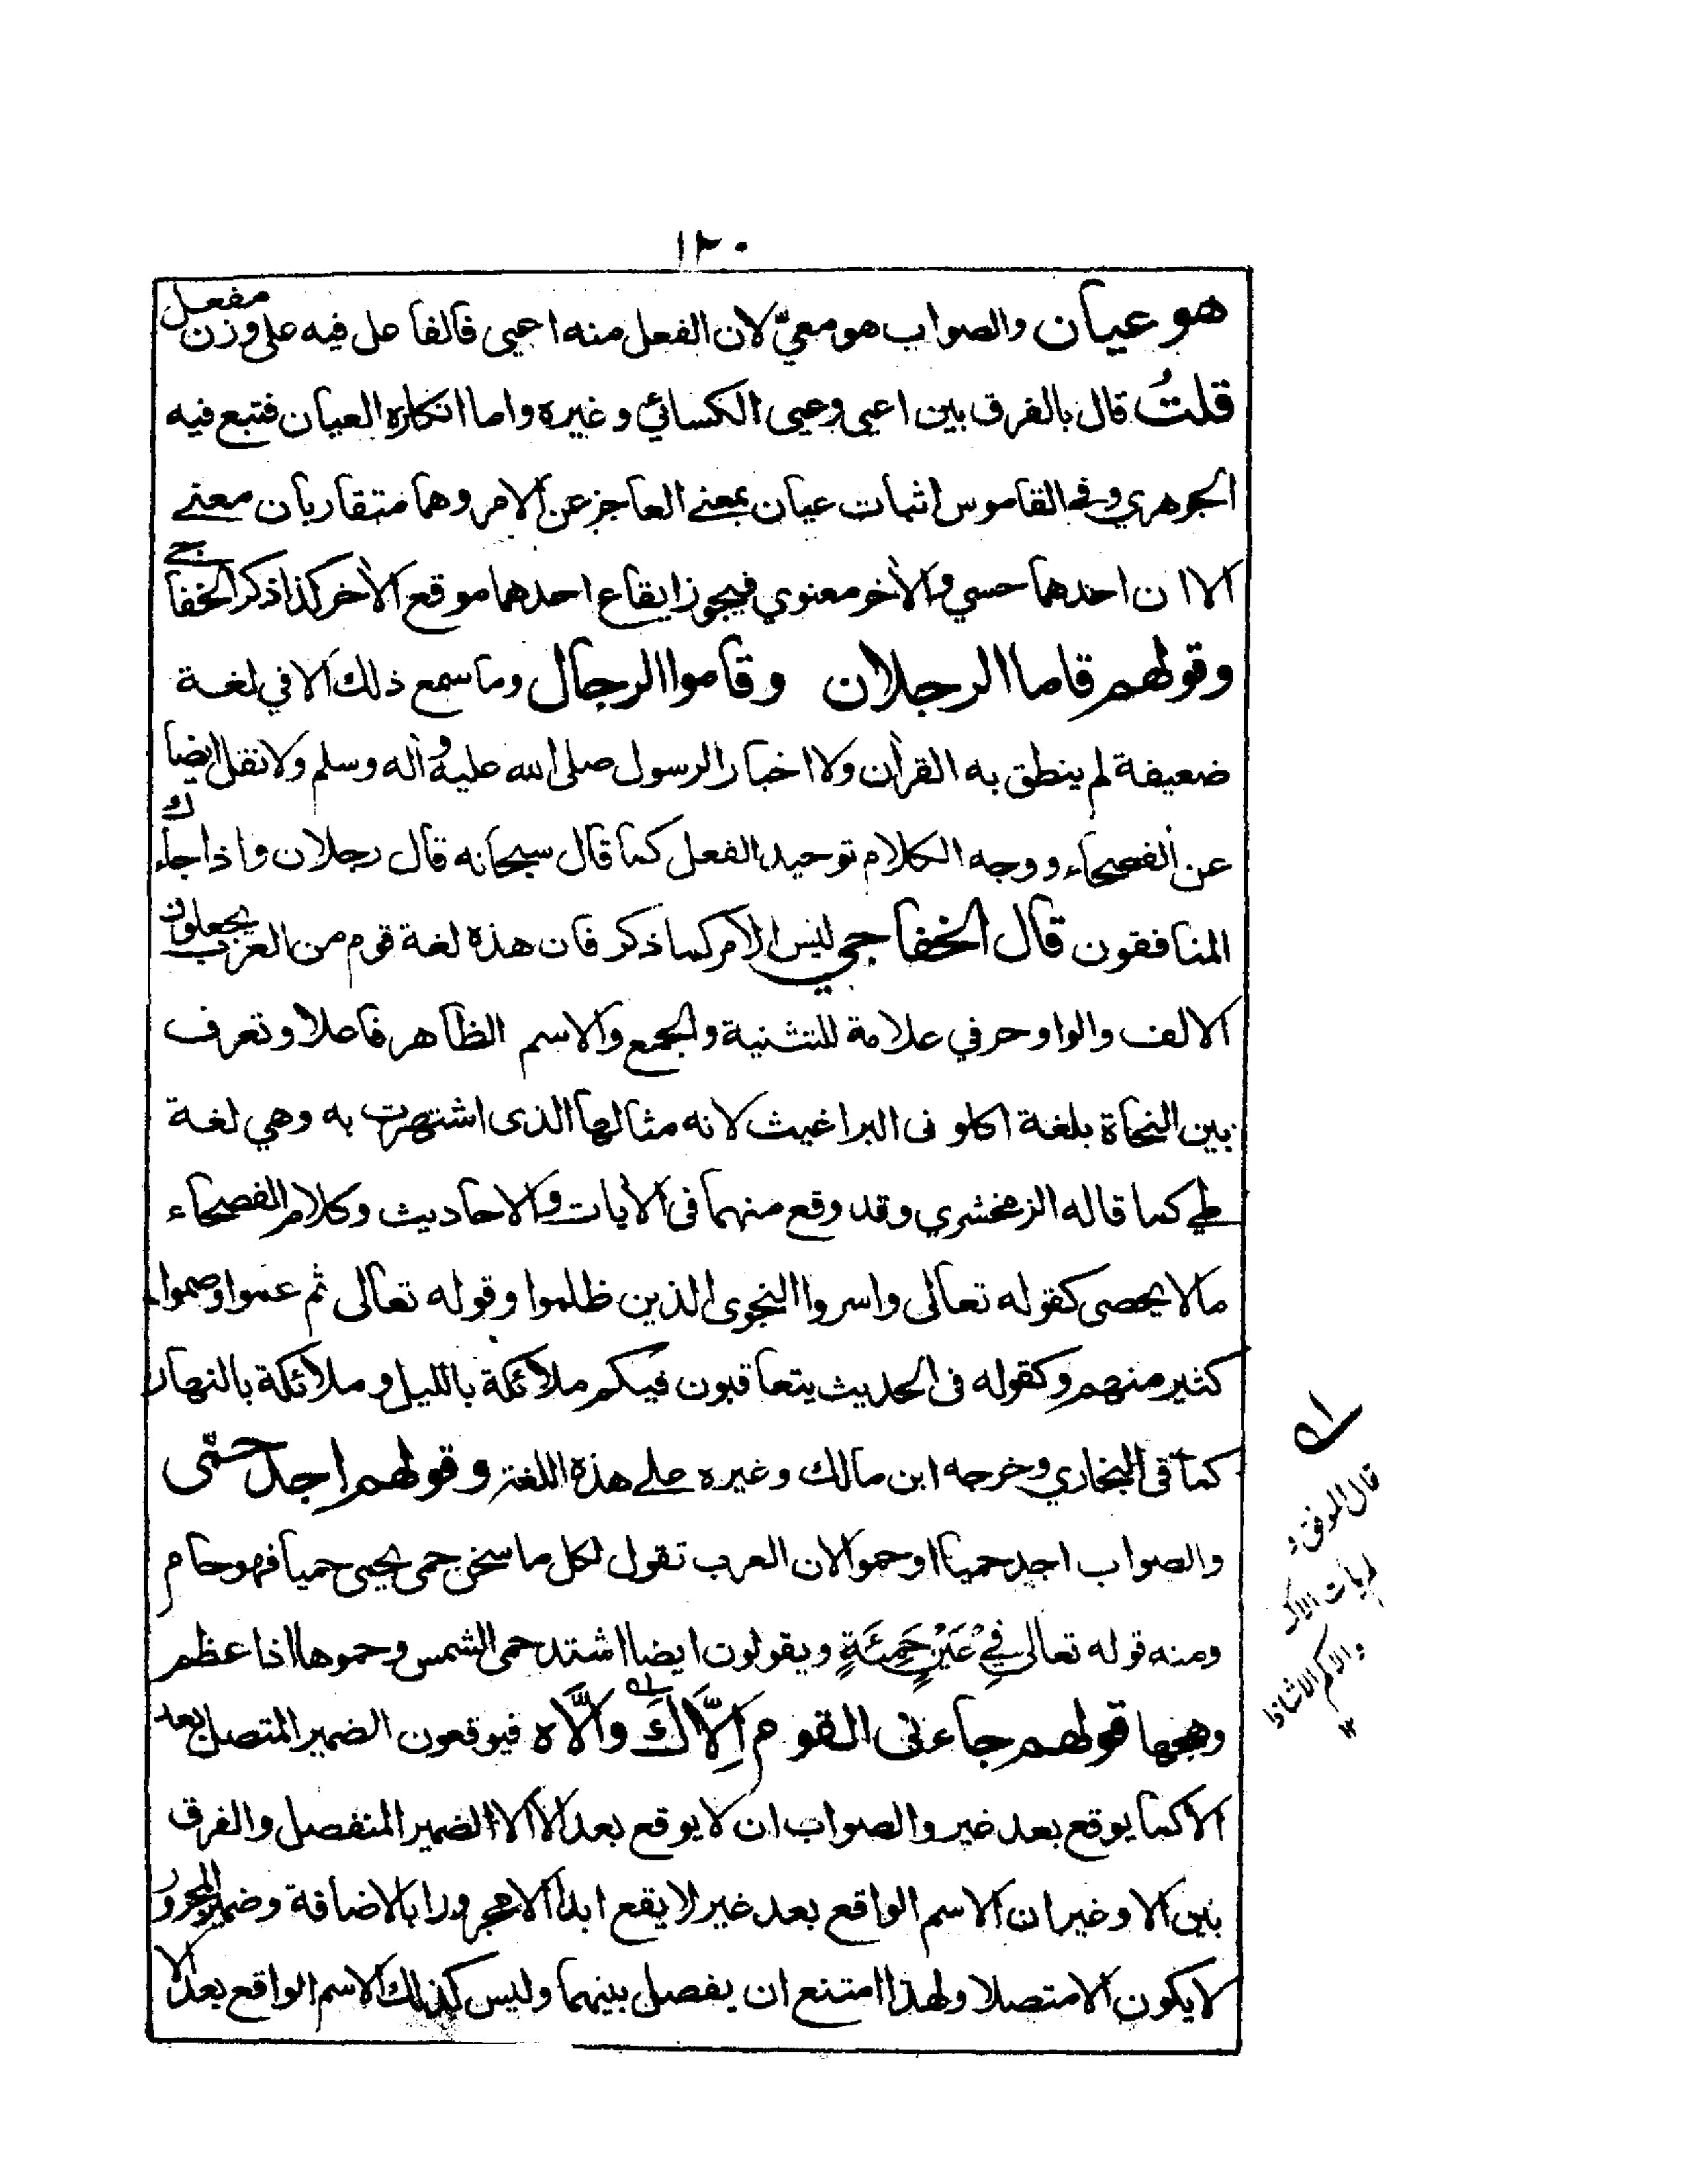 ١٢٠
هو عيان والصواب هو معيّ لان الفعل منه اعيى فالفاعل فيه على وزن مفعل
قلتُ قال بالفرق بين اعيى وعيى الكسائي وغيره واما انكاره العيان فتبع فيه
الجوهري وفي القاموس اثبات عيان بمعنى العاجز عن الامر وهما متقاربان معنى
الا ان احدهما حسي والآخر معنوي فيجوز ايقاع احدهما موقع الآخر كذا ذكر الخفاجي
وقولهم قاما الرجلان وقاموا الرجال وما سمع ذلك الا في لغة
ضعيفة لم ينطق به القرآن ولا اخبار الرسول صلى الله عليه وآله وسلم ولا نقل ايضا
عن الفصحاء ووجه الكلام توحيد الفعل كما قال سبحانه قال رجلان واذا جاءك
المنافقون قال الخفاجي ليس الامر كما ذكر فان هذه لغة قوم من العرب يجعلون
الالف والواو حرفي علامة للتثنية والجمع والاسم الظاهر فاعلا وتعرف
بين النحاة بلغة اكلوني البراغيث لانه مثالها الذي اشتهرت به وهي لغة
طي كما قاله الزمخشري وقد وقع منهما في الآيات والاحاديث وكلام الفصحاء
مالا يحصى كقوله تعالى واسروا النجوى الذين ظلموا وقوله تعالى ثم عموا وصموا
كثير منهم وكقوله في الحديث يتعاقبون فيكم ملائكة بالليل وملائكة بالنهار
كما في البخاري وخرجه ابن مالك وغيره على هذه اللغة وقولهم اجد حمّى
والصواب اجد حميا او حموا لان العرب تقول لكل ما سخن حمى يحيى حميا فهو حام
ومنه قوله تعالى فِي عَيْنٍ حَمِئَةٍ ويقولون ايضا اشتد حمى الشمس وحموها اذا عظم
وهجها قولهم جاءني القوم اِلَّاكَ واِلَّاه فيوقعون الضمير المتصل بعد
الا كما يوقع بعد غير والصواب ان لا يوقع بعد الا الا الضمير المنفصل والفرق
بين الا وغير ان الاسم الواقع بعد غير لا يقع ابدا الا مجرورا بالاضافة وضمير المجرور
لا يكون الا متصلا ولهذا امتنع ان يفصل بينهما وليس كذلك الاسم الواقع بعد الا
قال الموفق